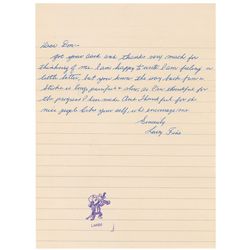 Dear Don—
Got your card and thanks very much for
thinking of me. I am happy to write I am feeling a
little better, but you know the way back from a
stroke is long, painful & slow, as I am thankful for
the progress I have made. And Thankful for
nice people like your self, who encourage me.
Sincerely
Larry Fine
LARRY